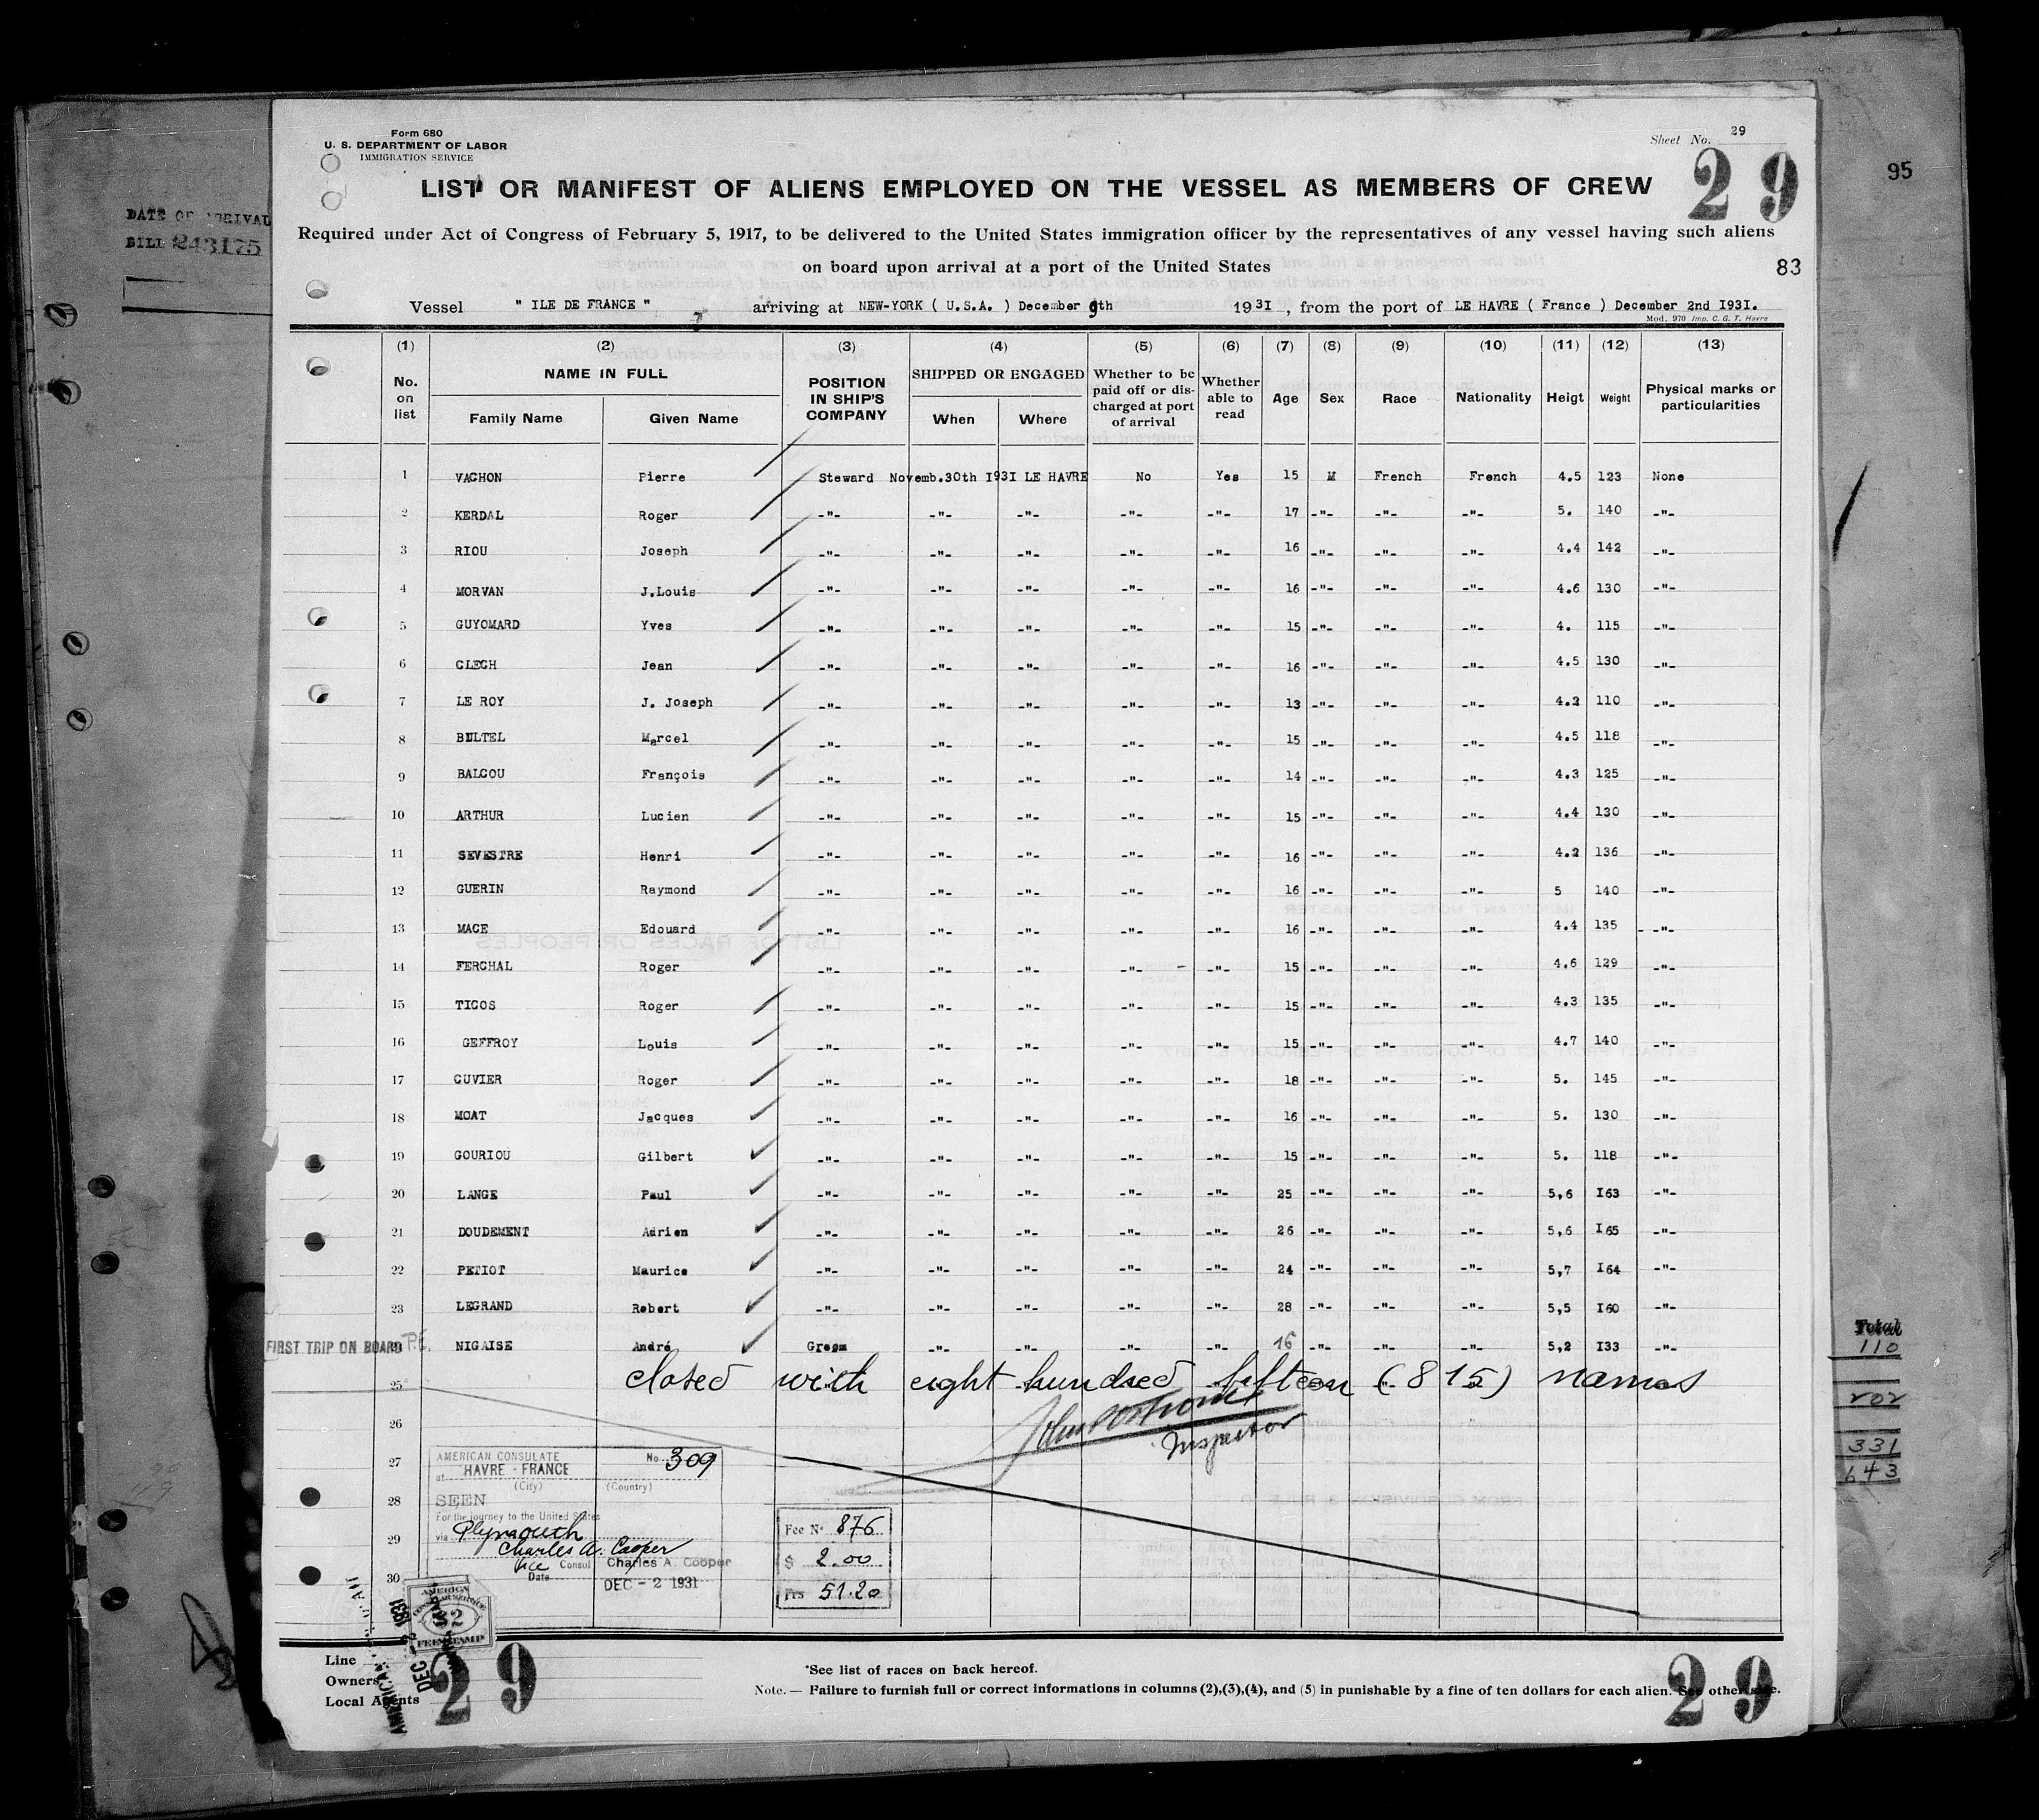 Form 680
U. S. DEPARTMENT OF LABOR
IMMIGRATION SERVICE
Sheet No. 29
29
95
LIST OR MANIFEST OF ALIENS EMPLOYED ON THE VESSEL AS MEMBERS OF CREW
DATE OF ARRIVAL
BILL 243175
Required under Act of Congress of February 5, 1917, to be delivered to the United States immigration officer by the representatives of any vessel having such aliens
on board upon arrival at a port of the United States
83
Vessel " ILE DE FRANCE " arriving at NEW-YORK ( U.S.A. ) December 9th 1931 , from the port of LE HAVRE ( France ) December 2nd I93I.
Mod. 970 Imp. C. G. T. Havre
(1) (2) (3) (4) (5) (6) (7) (8) (9) (10) (11) (12) (13)
No. on list NAME IN FULL Family Name Given Name POSITION IN SHIP'S COMPANY SHIPPED OR ENGAGED When Where Whether to be paid off or discharged at port of arrival Whether able to read Age Sex Race Nationality Heigt Weight Physical marks or particularities
1 VACHON Pierre Steward Novemb.30th I93I LE HAVRE No Yes 15 M French French 4.5 123 None
2 KERDAL Roger -"- -"- -"- -"- -"- 17 -"- -"- -"- 5. 140 -"-
3 RIOU Joseph -"- -"- -"- -"- -"- 16 -"- -"- -"- 4.4 142 -"-
4 MORVAN J.Louis -"- -"- -"- -"- -"- 16 -"- -"- -"- 4.6 130 -"-
5 GUYOMARD Yves -"- -"- -"- -"- -"- 15 -"- -"- -"- 4. 115 -"-
6 CLECH Jean -"- -"- -"- -"- -"- 16 -"- -"- -"- 4.5 130 -"-
7 LE ROY J. Joseph -"- -"- -"- -"- -"- 13 -"- -"- -"- 4.2 110 -"-
8 BULTEL Marcel -"- -"- -"- -"- -"- 15 -"- -"- -"- 4.5 118 -"-
9 BALCOU François -"- -"- -"- -"- -"- 14 -"- -"- -"- 4.3 125 -"-
10 ARTHUR Lucien -"- -"- -"- -"- -"- 15 -"- -"- -"- 4.4 130 -"-
11 SEVESTRE Henri -"- -"- -"- -"- -"- 16 -"- -"- -"- 4.2 136 -"-
12 GUERIN Raymond -"- -"- -"- -"- -"- 16 -"- -"- -"- 5 140 -"-
13 MACE Edouard -"- -"- -"- -"- -"- 16 -"- -"- -"- 4.4 135 -"-
14 FERCHAL Roger -"- -"- -"- -"- -"- 15 -"- -"- -"- 4.6 129 -"-
15 TICOS Roger -"- -"- -"- -"- -"- 15 -"- -"- -"- 4.3 135 -"-
16 GEFFROY Louis -"- -"- -"- -"- -"- 15 -"- -"- -"- 4.7 140 -"-
17 CUVIER Roger -"- -"- -"- -"- -"- 18 -"- -"- -"- 5. 145 -"-
18 MOAT Jacques -"- -"- -"- -"- -"- 16 -"- -"- -"- 5. 130 -"-
19 GOURIOU Gilbert -"- -"- -"- -"- -"- 15 -"- -"- -"- 5. 118 -"-
20 LANGE Paul -"- -"- -"- -"- -"- 25 -"- -"- -"- 5,6 I63 -"-
21 DOUDEMENT Adrien -"- -"- -"- -"- -"- 26 -"- -"- -"- 5,6 I65 -"-
22 PETIOT Maurice -"- -"- -"- -"- -"- 24 -"- -"- -"- 5,7 I64 -"-
23 LEGRAND Robert -"- -"- -"- -"- -"- 28 -"- -"- -"- 5,5 I60 -"-
FIRST TRIP ON BOARD P.E. NIGAISE André Groom -"- -"- -"- -"- 16 -"- -"- -"- 5,2 I33 -"-
Total
110
202
331
643
25 closed with eight hundred fifteen (815) names
26
Inspector
27
28
29
30
AMERICAN CONSULATE No. 309
at HAVRE - FRANCE
(City) (Country)
SEEN
For the journey to the United States
via Plymouth
Charles A. Cooper
Vice Consul Charles A. Cooper
Date DEC - 2 1931
Fee No 876
$ 2.00
Frs 51.20
AMERICAN
CONSULAR SERVICE
$2
FEE STAMP
AMERICAN
DEC 1931
Line
Owners
Local Agents
29
*See list of races on back hereof.
Note. — Failure to furnish full or correct informations in columns (2),(3),(4), and (5) in punishable by a fine of ten dollars for each alien. See other side.
29